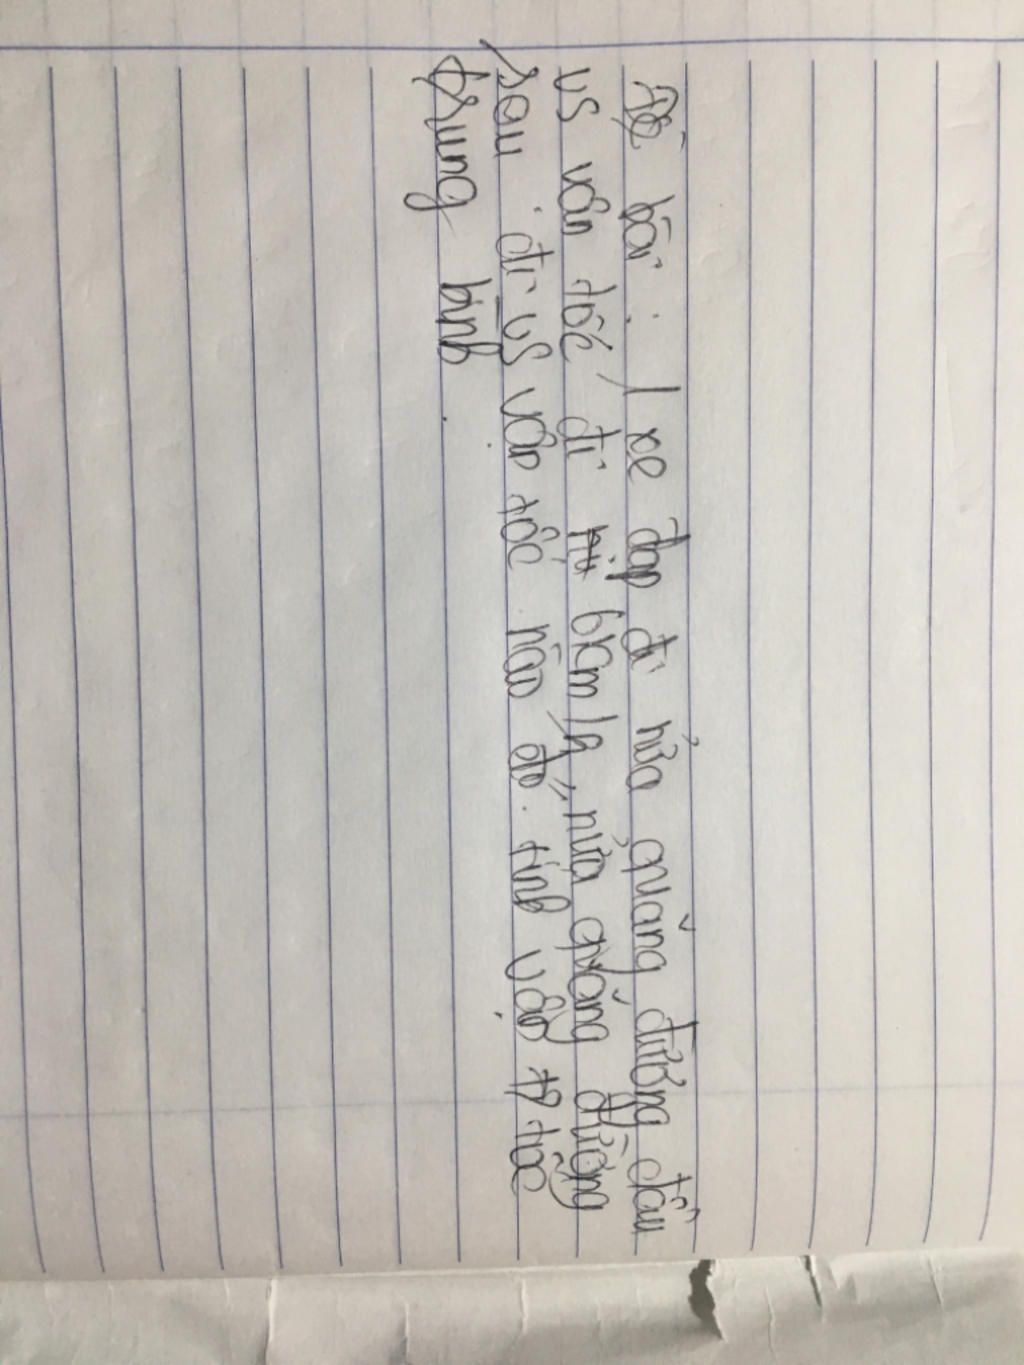 Đề bài : 1 xe đạp đi nửa quãng đường đầu
vs vân tốc đi 6km/h, nửa quãng đường
sau đi vs vân tốc nào đó. tính vận tốc
trung bình.